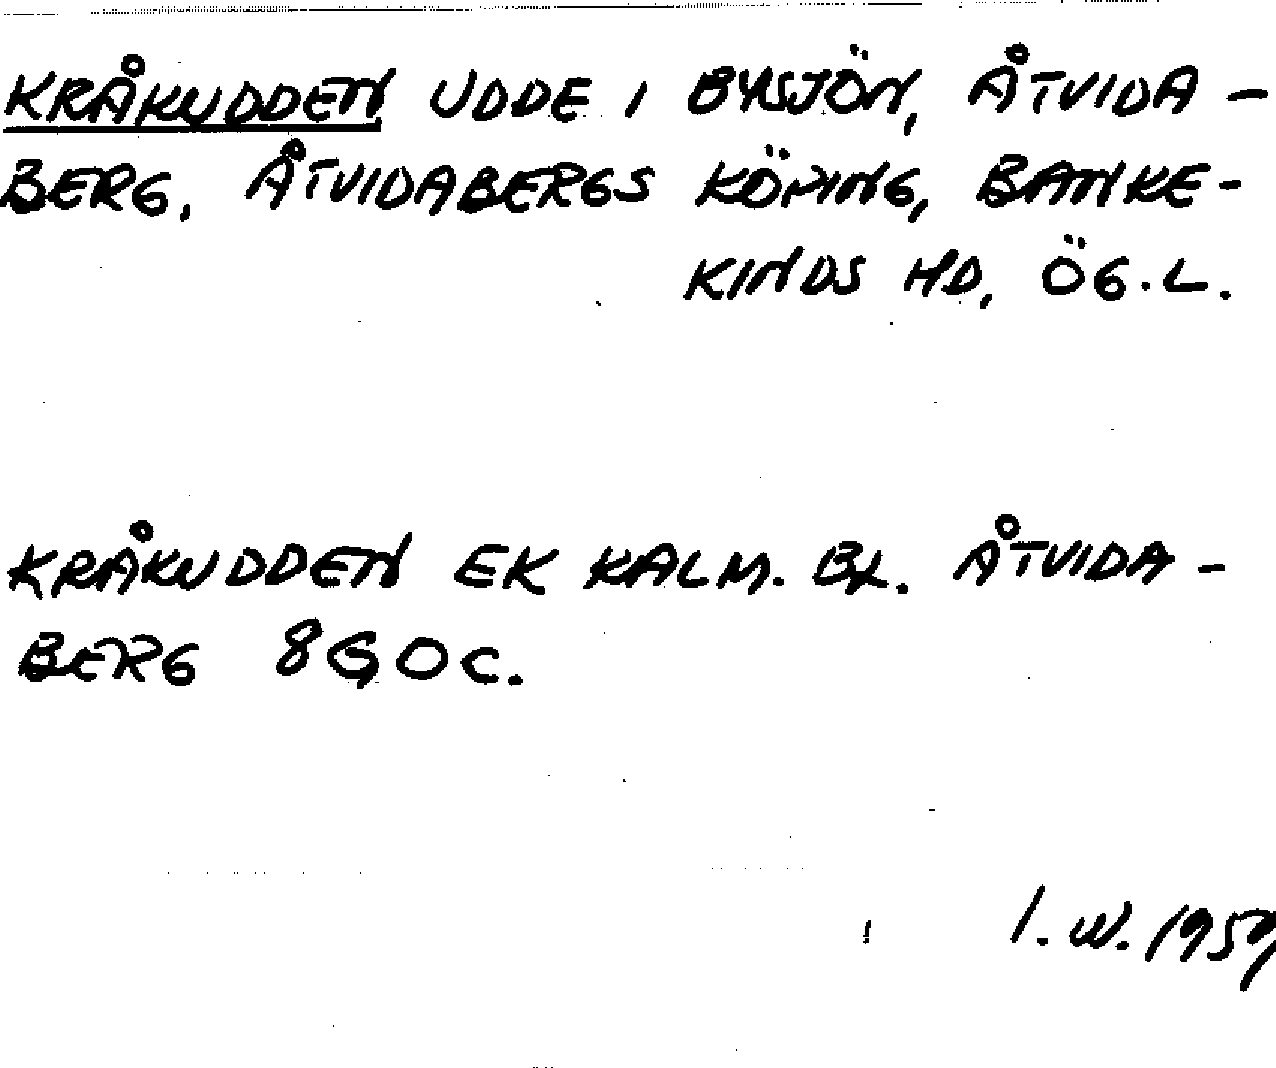 KRÅKUDDEN UDDE I BYSJÖN, ÅTVIDA-
BERG, ÅTVIDABERGS KÖPING, BANKE-
KINDS HD, ÖG.L.
KRÅKUDDEN EK KALM. BL. ÅTVIDA-
BERG 8G0c.
I.W. 1959